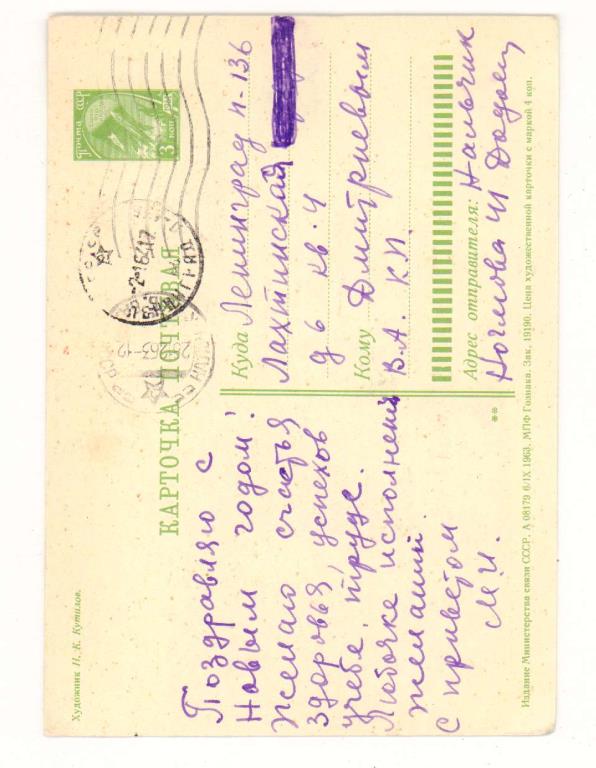 Художник Н. К. Кутилов.
КАРТОЧКА ПОЧТОВАЯ
Почта СССР
3 коп
Поздравляю с
Новым годом!
Желаю счастья
здоровья, успехов
учебе, труде.
Любочке исполнения
желаний.
с приветом
М.И.
Куда Ленинград П-136
Лахтинская
д 6 кв. 4
Кому Дмитриевым
В.А. К.П.
Адрес отправителя: Нальчик
Ногмова 41
Издание Министерства связи СССР. А 08179 6/IX 1963. МПФ Гознака. Зак. 19190. Цена художественной карточки с маркой 4 коп.